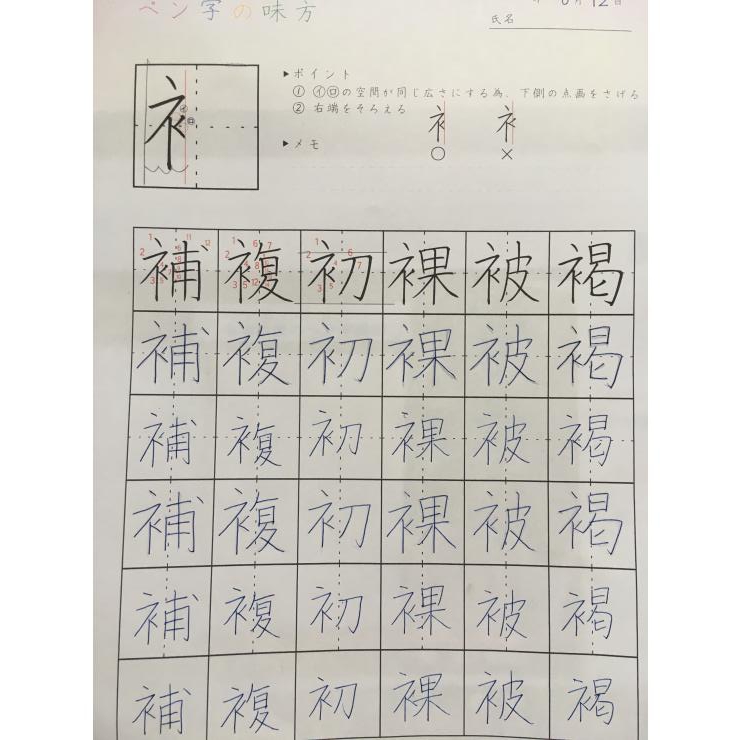 ペン字の味方
月12日
氏名
衤
イ
ロ
▶ポイント
① ㋑㋺の空間が同じ広さにする為、下側の点画をさげる
② 右端をそろえる
▶メモ
衤 衤
○ ×
補 複 初 裸 被 褐
補 複 初 裸 被 褐
補 複 初 裸 被 褐
補 複 初 裸 被 褐
補 複 初 裸 被 褐
補 複 初 裸 被 褐